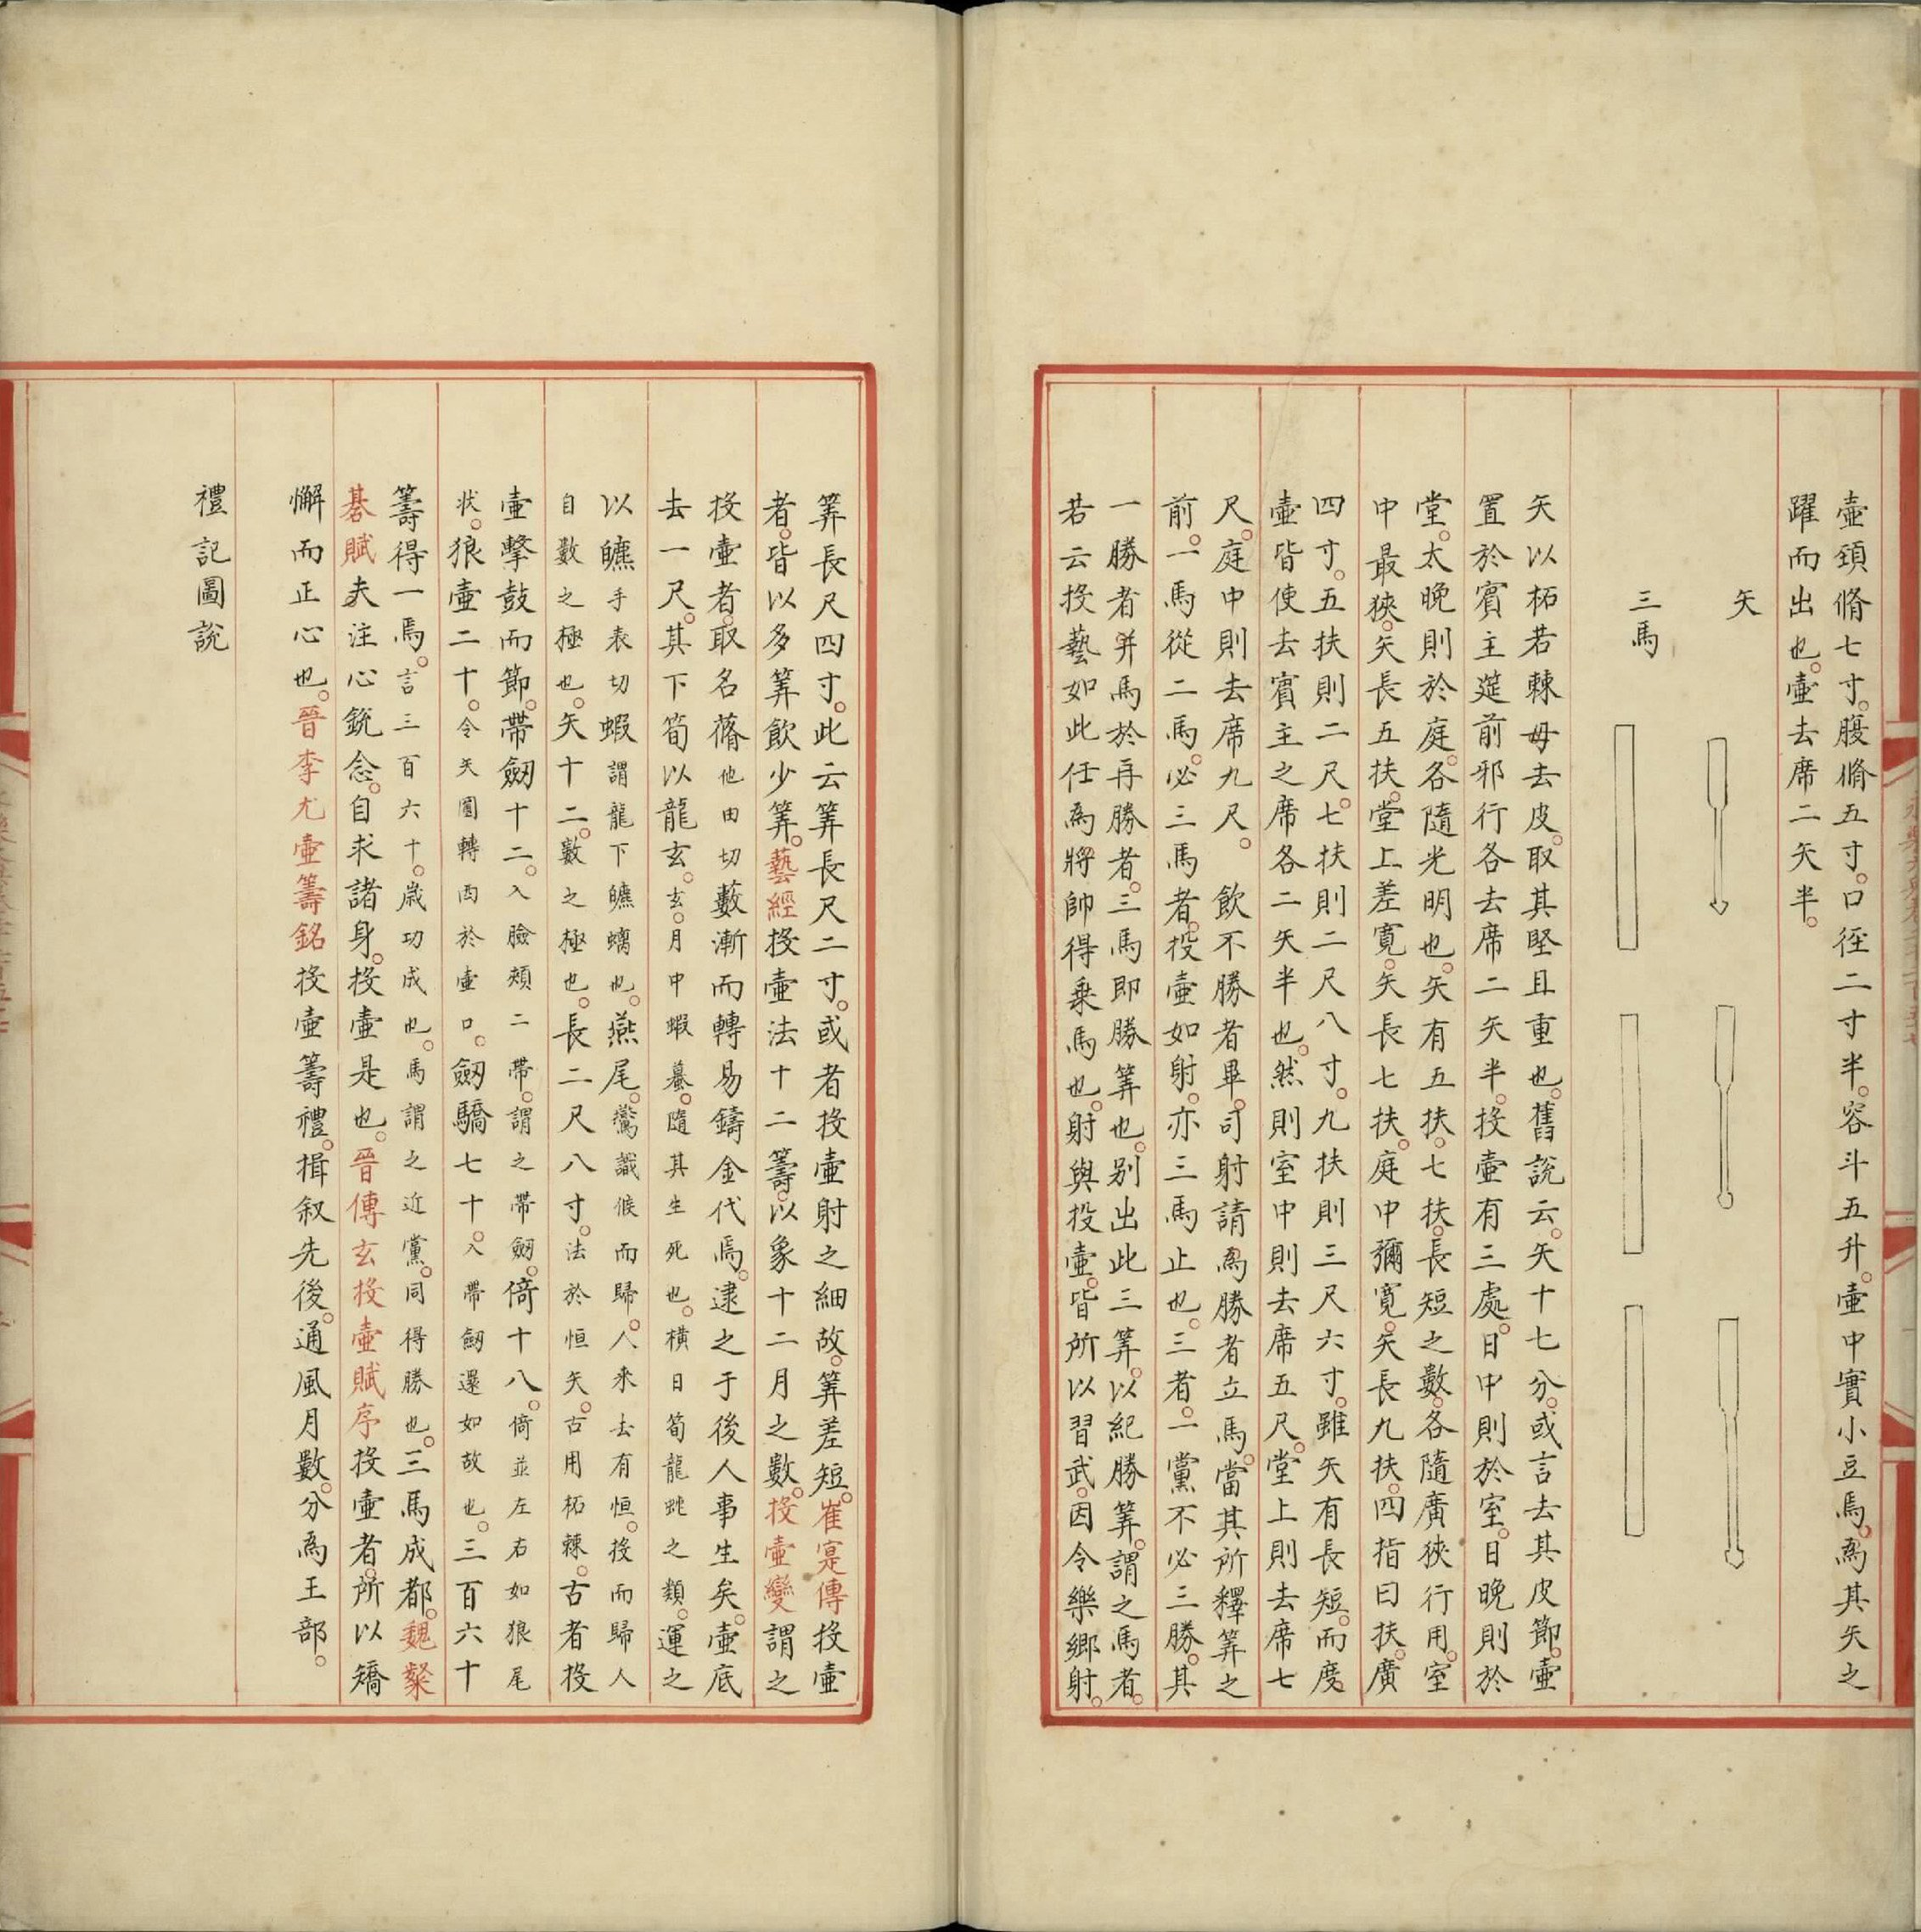 壺頸脩七寸。腹脩五寸。口徑二寸半。容斗五升。壺中實小豆焉。為其矢之
躍而出也。壺去席二矢半。
矢
三馬
矢以柘若棘毋去皮。取其堅且重也。舊說云。矢十七分。或言去其皮節。壺
置於賓主筵前邪行各去席二矢半。投壺有三處。日中則於室。日晚則於
堂。太晚則於庭。各隨光明也。矢有五扶。七扶。長短之數。各隨廣狹行用。室
中最狹。矢長五扶。堂上差寬。矢長七扶。庭中彌寬。矢長九扶。四指曰扶。廣
四寸。五扶則二尺。七扶則二尺八寸。九扶則三尺六寸。雖矢有長短。而度
壺皆使去賓主之席各二矢半也。然則室中則去席五尺。堂上則去席七
尺。庭中則去席九尺。 飲不勝者畢。司射請為勝者立馬。當其所釋筭之
前。一馬從二馬。必三馬者。投壺如射。亦三馬止也。三者。一黨不必三勝。其
一勝者并馬於再勝者。三馬即勝筭也。別出此三筭。以紀勝筭。謂之馬者。
若云投藝如此任為將帥得乗馬也。射與投壺。皆所以習武。因令樂鄉射。
筭長尺四寸。此云筭長尺二寸。或者投壺射之細故。筭差短。崔寔傳投壺
者。皆以多筭飲少筭。藝經投壺法十二籌。以象十二月之數。投壺變謂之
投壺者。取名蓨他由切藪漸而轉易鑄金代焉。逮之于後人事生矣。壺底
去一尺。其下筍以龍玄。玄。月中蝦蟇。隨其生死也。橫日筍龍虵之類。運之
以䗫手表切蝦謂龍下䗫螭也。燕尾。鷰識候而歸。人来去有恒。投而歸人
自數之極也。矢十二。數之極也。長二尺八寸。法於恒矢。古用柘棘。古者投
壺擊鼓而節。帶劒十二。入臉頰二帶。謂之帶劒。倚十八。倚並左右如狼尾
状。狼壺二十。令矢圓轉㢽於壺口。劒驕七十。入帶劒還如故也。三百六十
籌得一馬。言三百六十。歲功成也。馬謂之近黨。同得勝也。三馬成都。魏粲
棊賦夫注心銳念。自求諸身。投壺是也。晉傅玄投壺賦序投壺者。所以矯
懈而正心也。晉李尤壺籌銘投壺籌禮。揖叙先後。通風月數。分為王部。
禮記圖說